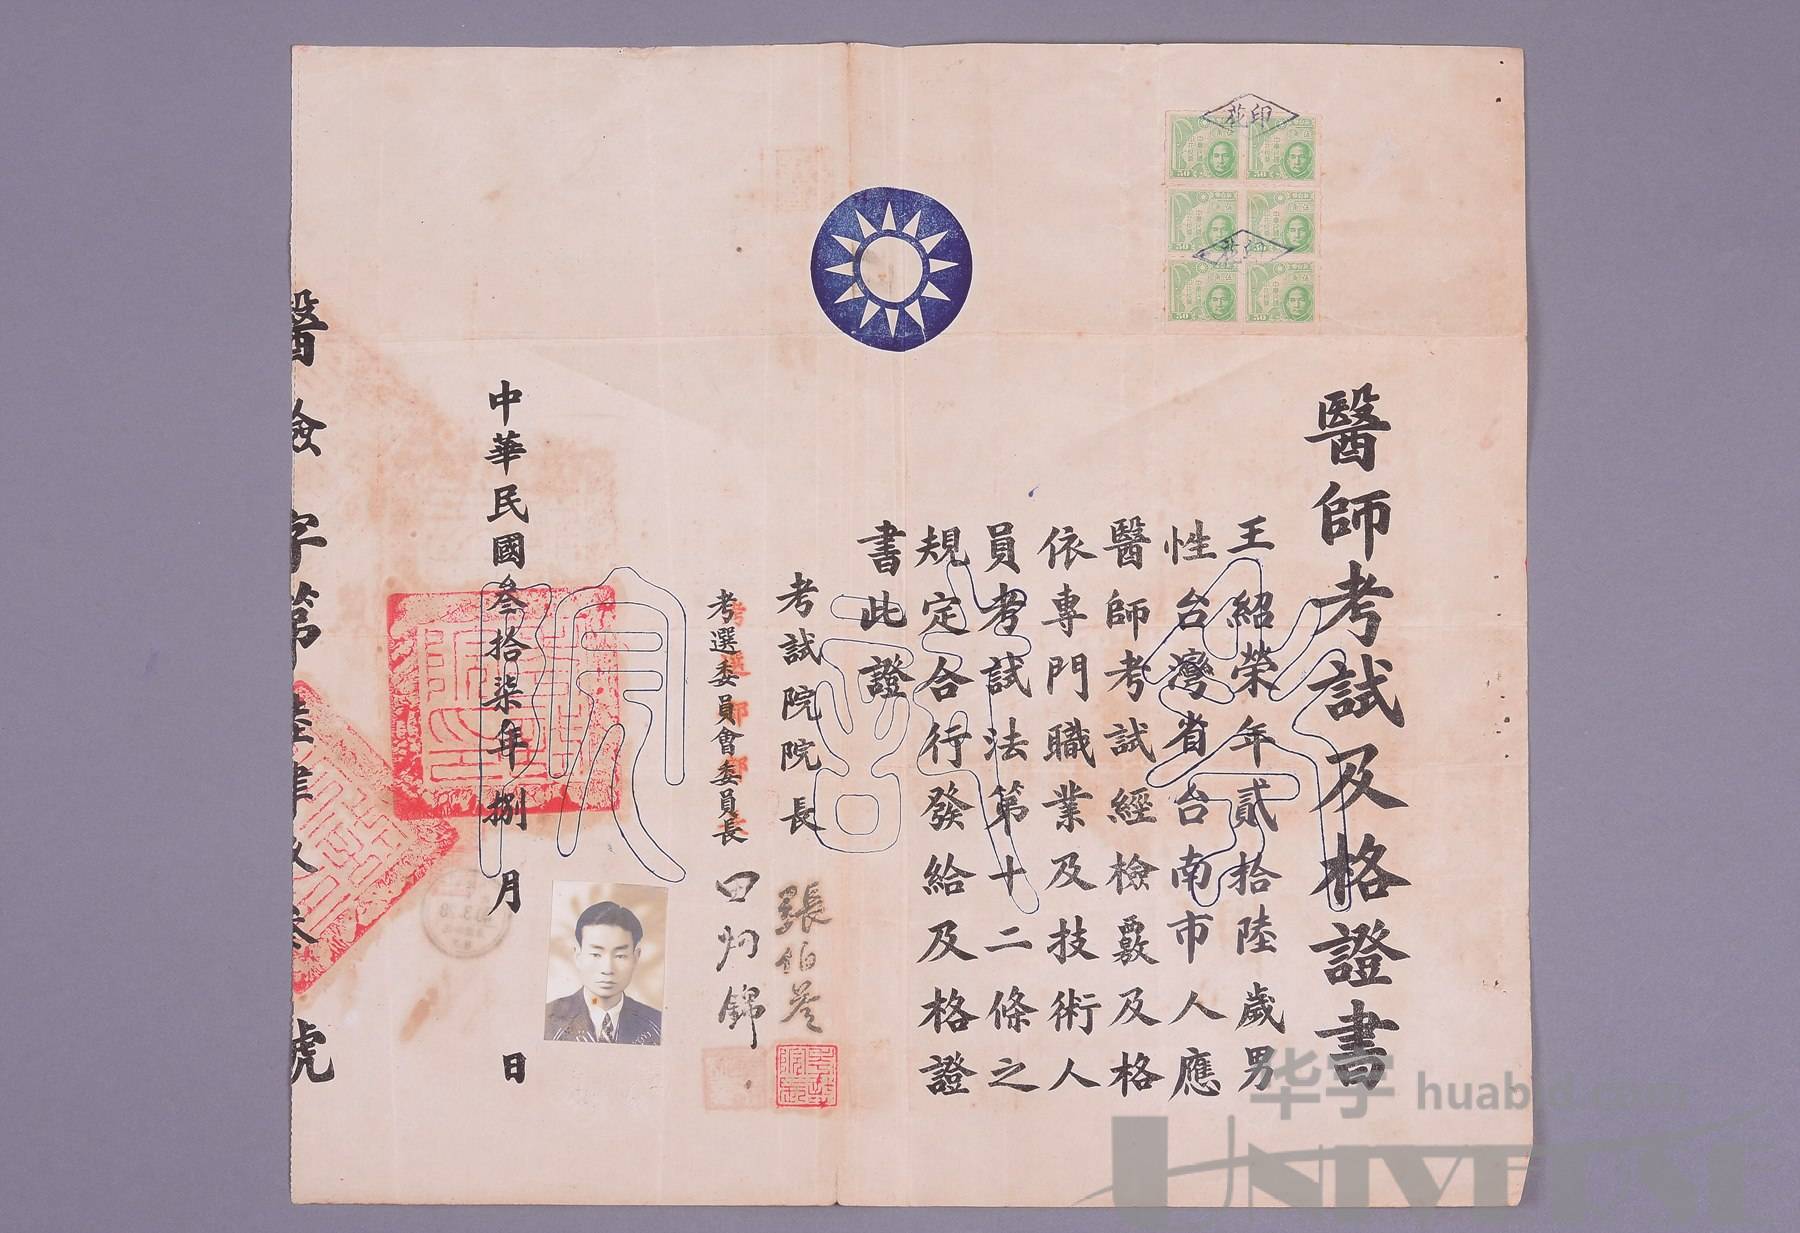 醫師考試及格證書
王紹榮年貳拾陸歲男
性台灣省台南市人應
醫師考試經檢覈及格
依專門職業及技術人
員考試法第十二條之
規定合行發給及格證
書此證
考試院院長 張伯苓
考選委員會委員長 田炯錦
中華民國叁拾柒年捌月 日
醫檢字第陸肆 叁號
印花
印花
考試院
50
50
50
50
50
50
华宇 huabid.com
UNIVERSE